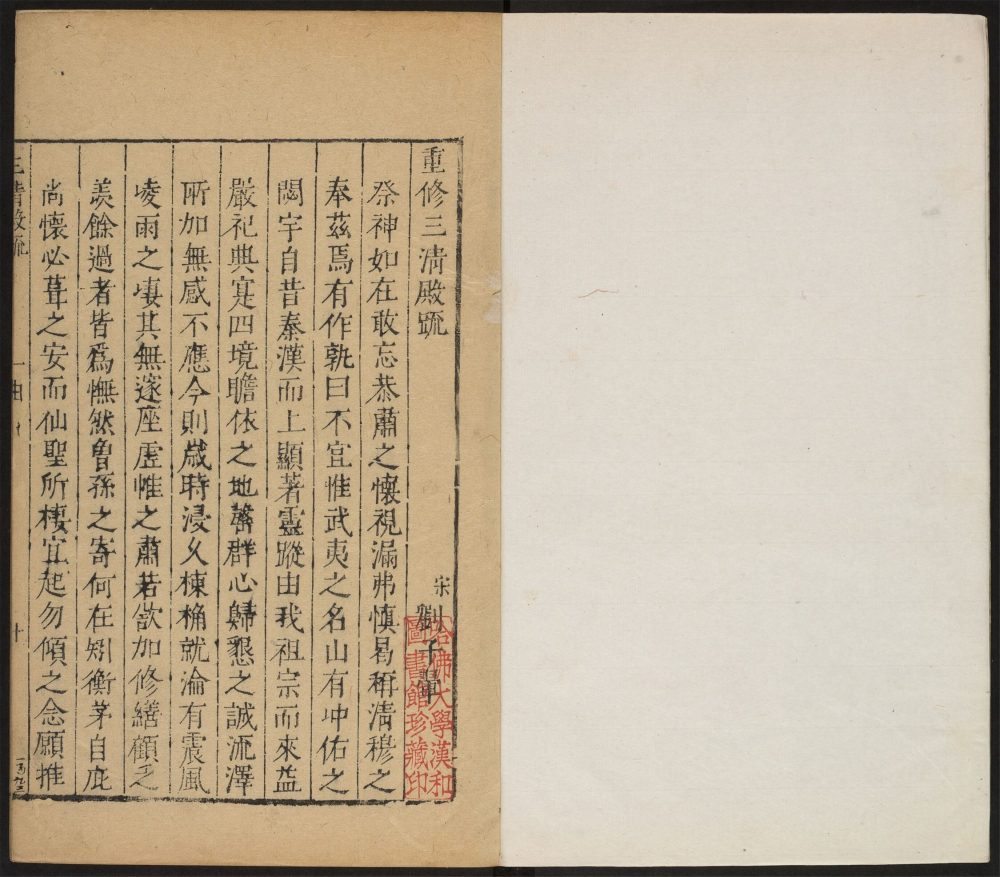 重修三清殿䟽
宋 劉子翬
祭神如在敢忘恭肅之懷視漏弗慎曷稱清穆之
奉茲焉有作孰曰不宜惟武夷之名山有冲佑之
閟宇自昔秦漢而上顯著靈蹤由我祖宗而來益
嚴祀典寔四境瞻依之地罄群心歸懇之誠流澤
所加無感不應今則歲時浸久棟桷就淪有震風
凌雨之悽其無邃座虛帷之肅若欲加修繕顧乏
羨餘過者皆爲憮然魯孫之寄何在矧衡茅自庇
尚懷必葺之安而仙聖所棲宜起勿傾之念願推
三清殿疏
一
十
哈佛大學漢和
圖書館珍藏印